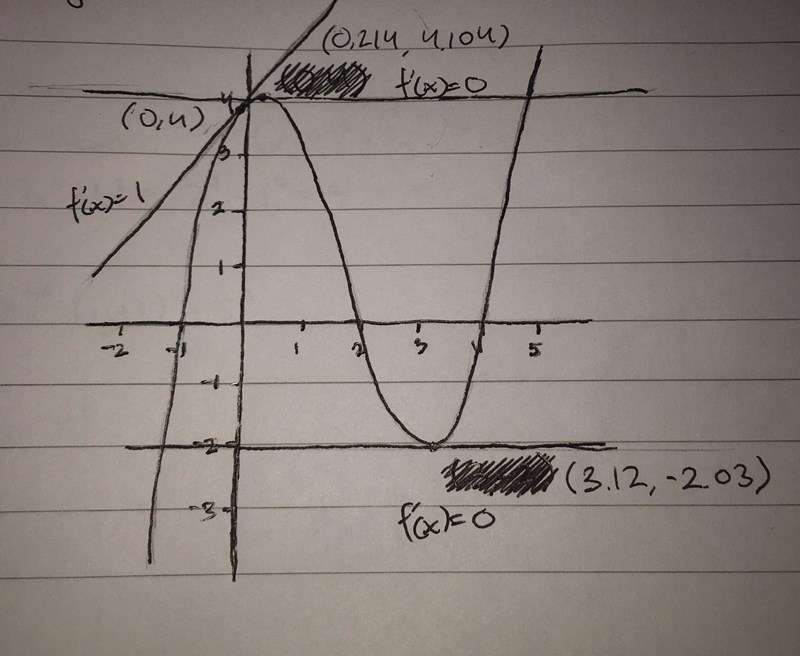 (0.214, 4.104)
f'(x)=0
(0,4)
4
3
f'(x)=1
2
1
-2 -1 1 2 3 4 5
-1
-2
(3.12, -2.03)
-3
f'(x)=0